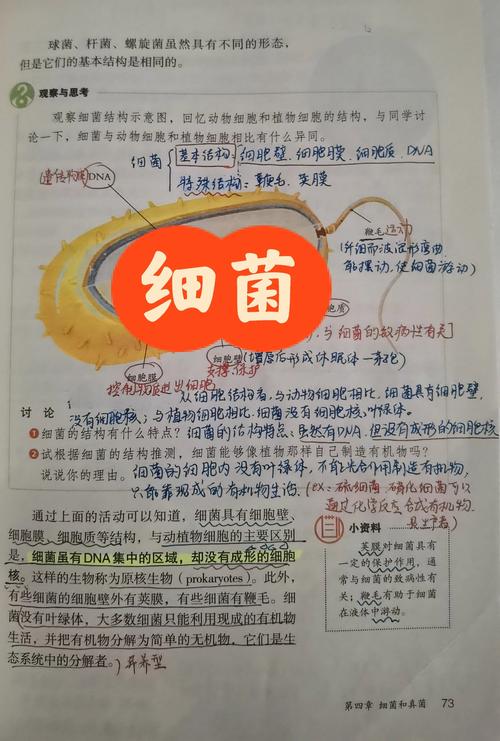 球菌、杆菌、螺旋菌虽然具有不同的形态，
但是它们的基本结构是相同的。
观察与思考
观察细菌结构示意图，回忆动物细胞和植物细胞的结构，与同学讨
论一下，细菌与动物细胞和植物细胞相比有什么异同。
细菌
基本结构：细胞壁、细胞膜、细胞质、DNA
特殊结构：鞭毛、荚膜
(遗传物质)DNA
鞭毛 运动
(纤细而波浪形弯曲
和摆动，使细菌游动)
细菌
胞质
与细菌的致病性有关]
细胞壁(增厚后形成休眠体—芽孢)
支撑、保护
细胞膜
控制物质进出细胞
从细胞结构看，与动物细胞相比，细菌具有细胞壁，
讨 论
没有细胞核；与植物细胞相比，细菌没有细胞核、叶绿体。
1 细菌的结构有什么特点？细菌的结构特点：虽然有DNA，但没有成形的细胞核
2 试根据细菌的结构推测，细菌能够像植物那样自己制造有机物吗？
说说你的理由。细菌的细胞内没有叶绿体，不能光合作用制造有机物，
只能靠现成的有机物生活。(ex：硫细菌、硝化细菌可以
通过化学反应合成有机物，
通过上面的活动可以知道，细菌具有细胞壁、
细胞膜、细胞质等结构，与动植物细胞的主要区别
是，细菌虽有DNA集中的区域，却没有成形的细胞
核。这样的生物称为原核生物（prokaryotes）。此外，
有些细菌的细胞壁外有荚膜，有些细菌有鞭毛。细
菌没有叶绿体，大多数细菌只能利用现成的有机物
生活，并把有机物分解为简单的无机物，它们是生
态系统中的分解者。) 异养型
小资料
荚膜对细菌具有
一定的保护作用，通
常与细菌的致病性有
关；鞭毛有助于细菌
在液体中游动。
第四章 细菌和真菌 73